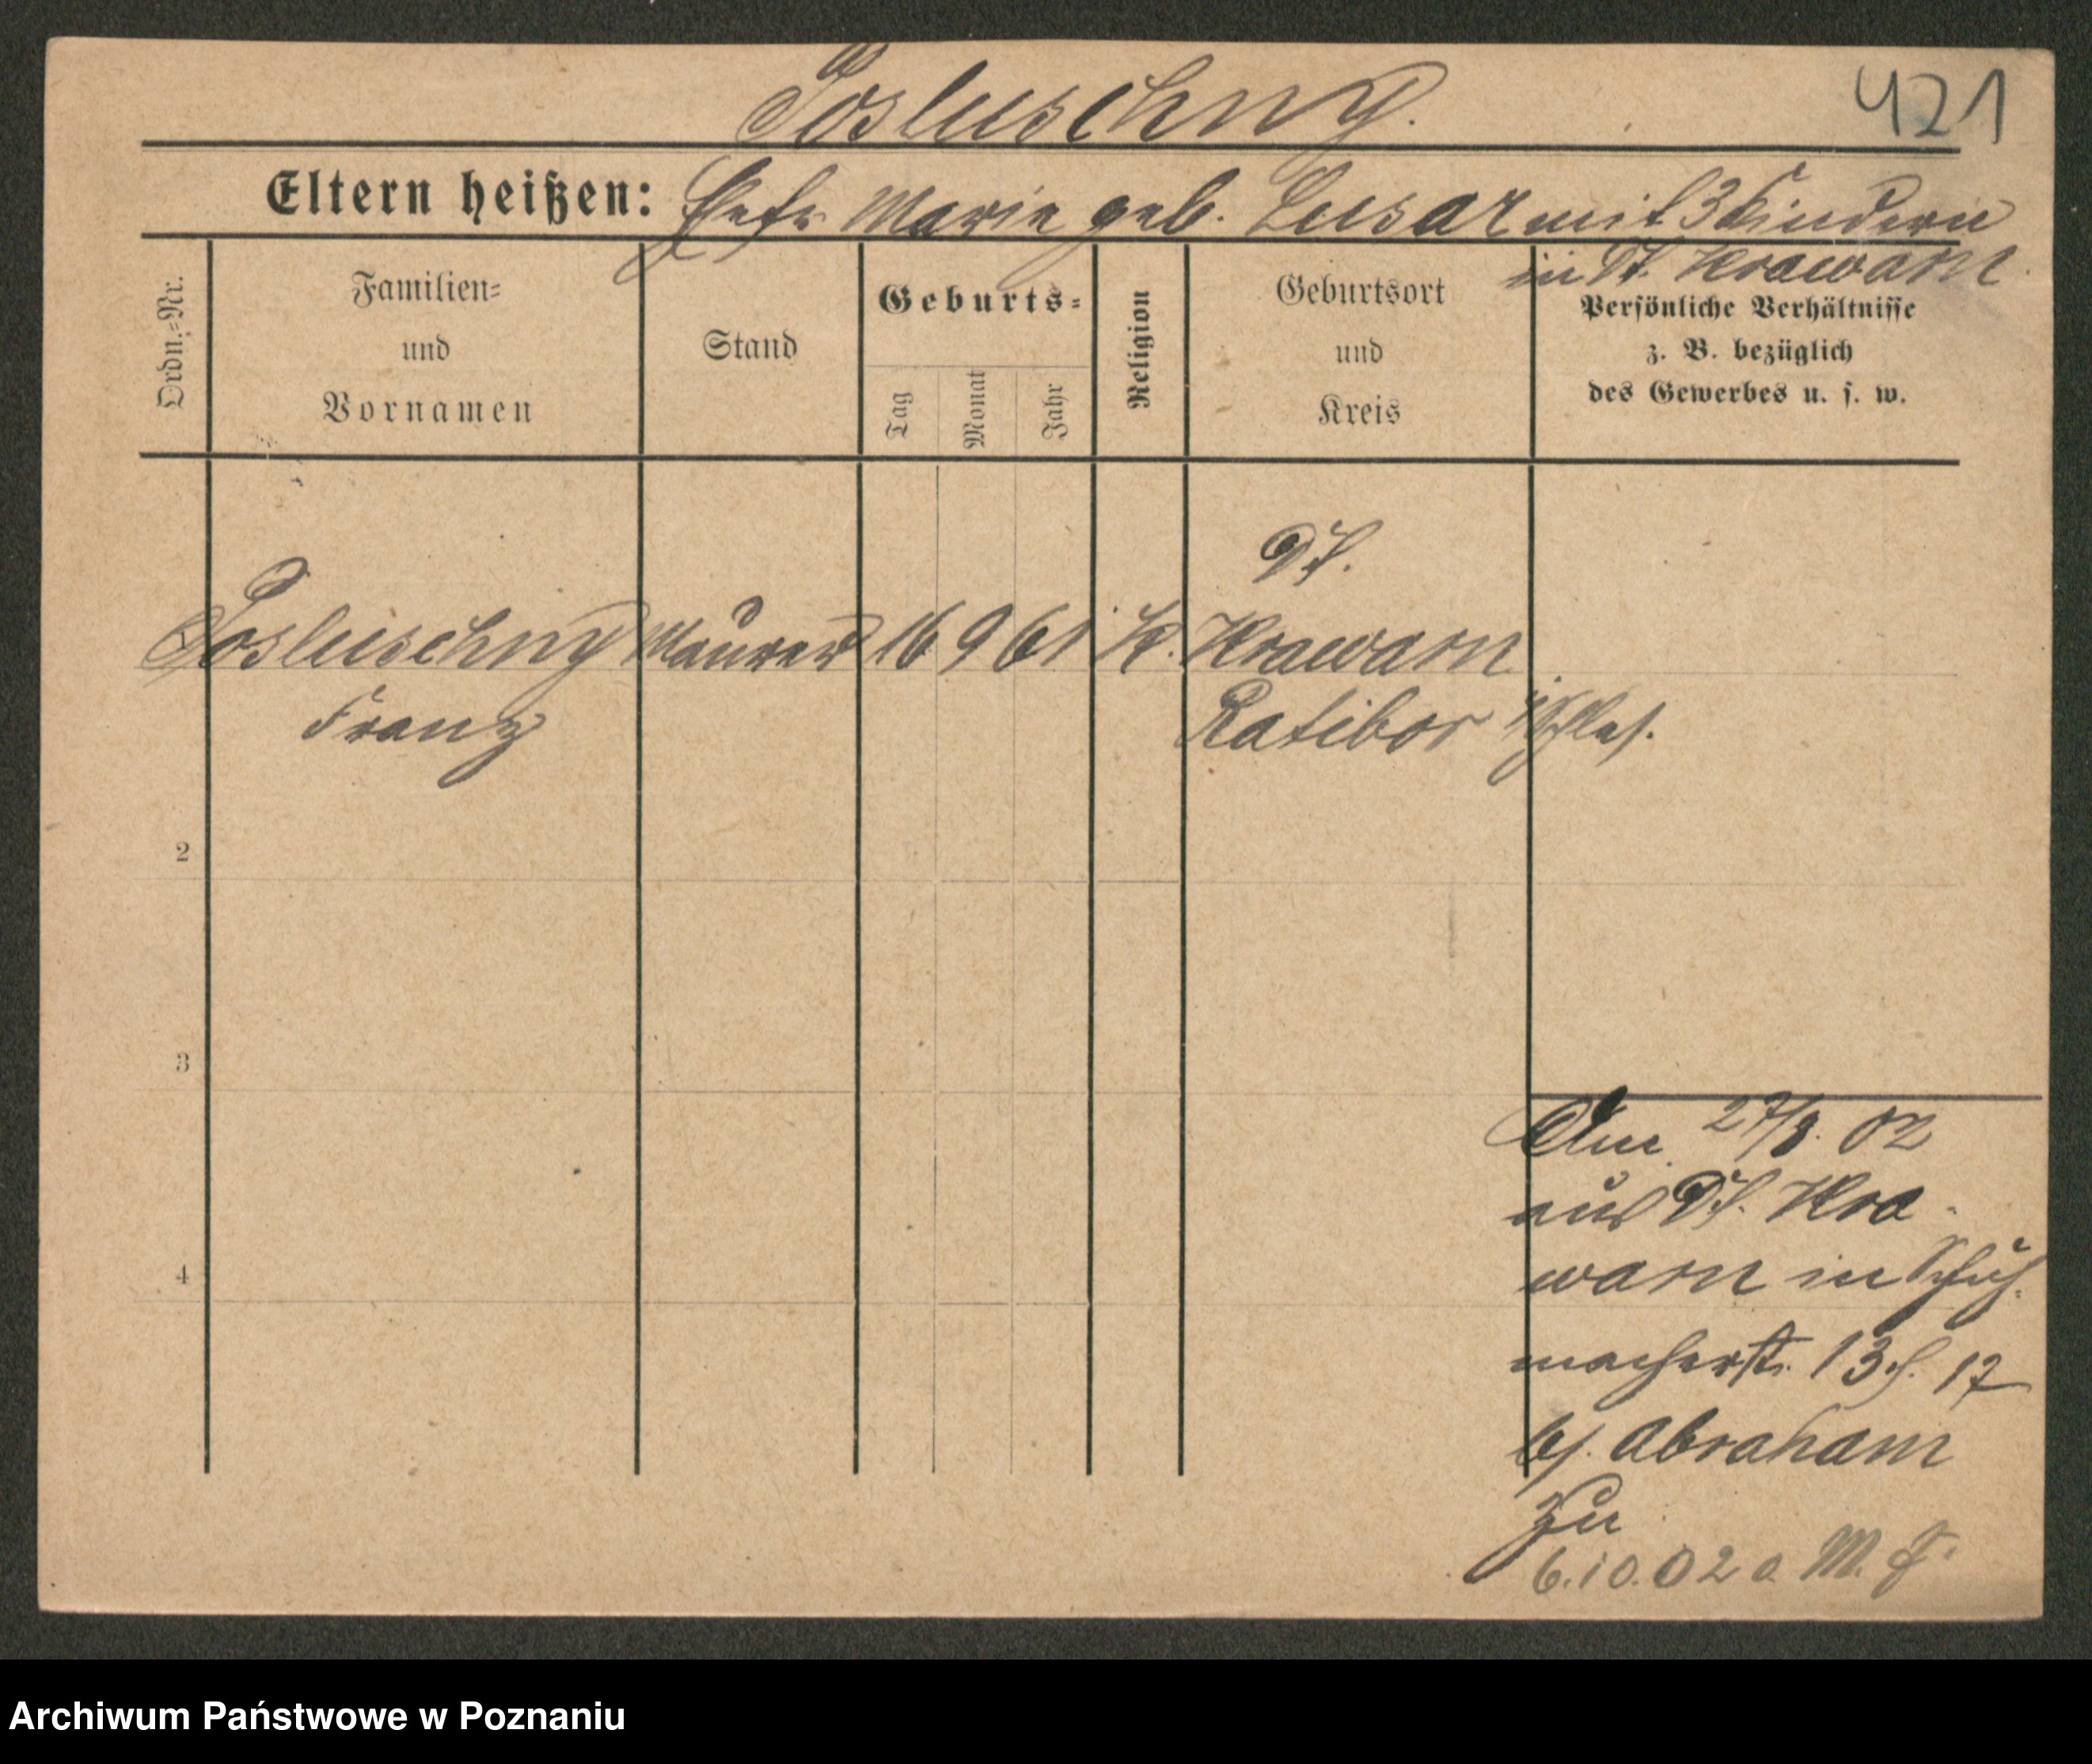 Posluschny.
421
Eltern heißen: Ehefr. Marie geb. Lusar mit 3 Kindern
in Dt. Krawarn
Ordn.-Nr.
Familien-
und
Vornamen
Stand
Geburts-
Tag
Monat
Jahr
Religion
Geburtsort
und
Kreis
Persönliche Verhältnisse
z. B. bezüglich
des Gewerbes u. s. w.
Dt.
Posluschny Maurer 16 9 61 K. Krawarn
Franz Ratibor i/Schles.
2
3
4
Am 27/8. 02
aus Dt. Kra-
warn in Schuh-
macherstr. 13 17
b/. Abraham
zu
6.10.02 M.
Archiwum Państwowe w Poznaniu